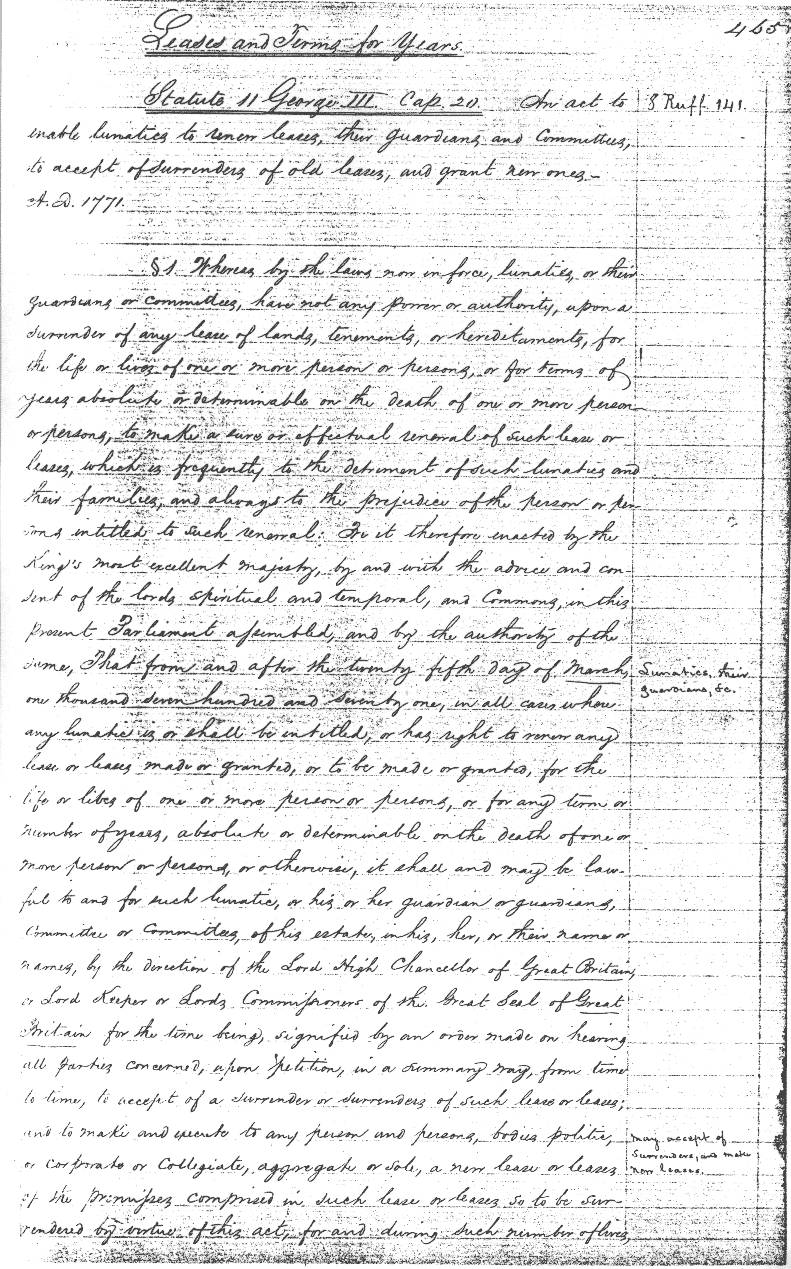 465
Leases and Terms for Years.
Statute 11 George III. Cap. 20. An act to
8 Ruff. 141.
enable lunatics to renew leases, their guardians and Committees,
to accept of surrenders of old leases, and grant new ones.—
A.D. 1771.
§1. Whereas by the laws now in force, lunatics, or their
guardians or committees, have not any power or authority, upon a
surrender of any lease of lands, tenements, or hereditaments, for
the life or lives of one or more person or persons, or for terms of
years absolute or determinable on the death of one or more person
or persons, to make a sure or effectual renewal of such lease or
leases, which is frequently to the detriment of such lunatics and
their families, and always to the prejudice of the person or per
sons intitled to such renewal: Be it therefore enacted by the
King's most excellent majesty, by and with the advice and con-
sent of the lords spiritual and temporal, and Commons, in this
present Parliament assembled, and by the authority of the
same, That from and after the twenty fifth day of March,
Lunatics, their
guardians, &c.
one thousand seven hundred and seventy one, in all cases where
any lunatic is or shall be intitled, or has right to renew any
lease or leases made or granted, or to be made or granted, for the
life or lives of one or more person or persons, or for any term or
number of years, absolute or determinable on the death of one or
more person or persons, or otherwise, it shall and may be law-
ful to and for such lunatic, or his or her guardian or guardians,
Committee or Committees, of his estate, in his, her, or their name or
names, by the direction of the Lord High Chancellor of Great Britain,
or Lord Keeper or Lords Commissioners of the Great Seal of Great
Britain for the time being, signified by an order made on hearing
all Parties concerned, upon petition, in a summary way, from time
to time, to accept of a surrender or surrenders of such lease or leases;
and to make and execute to any person and persons, bodies politic,
may accept of
surrenders, and make
new leases.
or corporate or Collegiate, aggregate or sole, a new lease or leases
of the premisses comprised in such lease or leases so to be sur-
rendered by virtue of this act, for and during such number of lives,